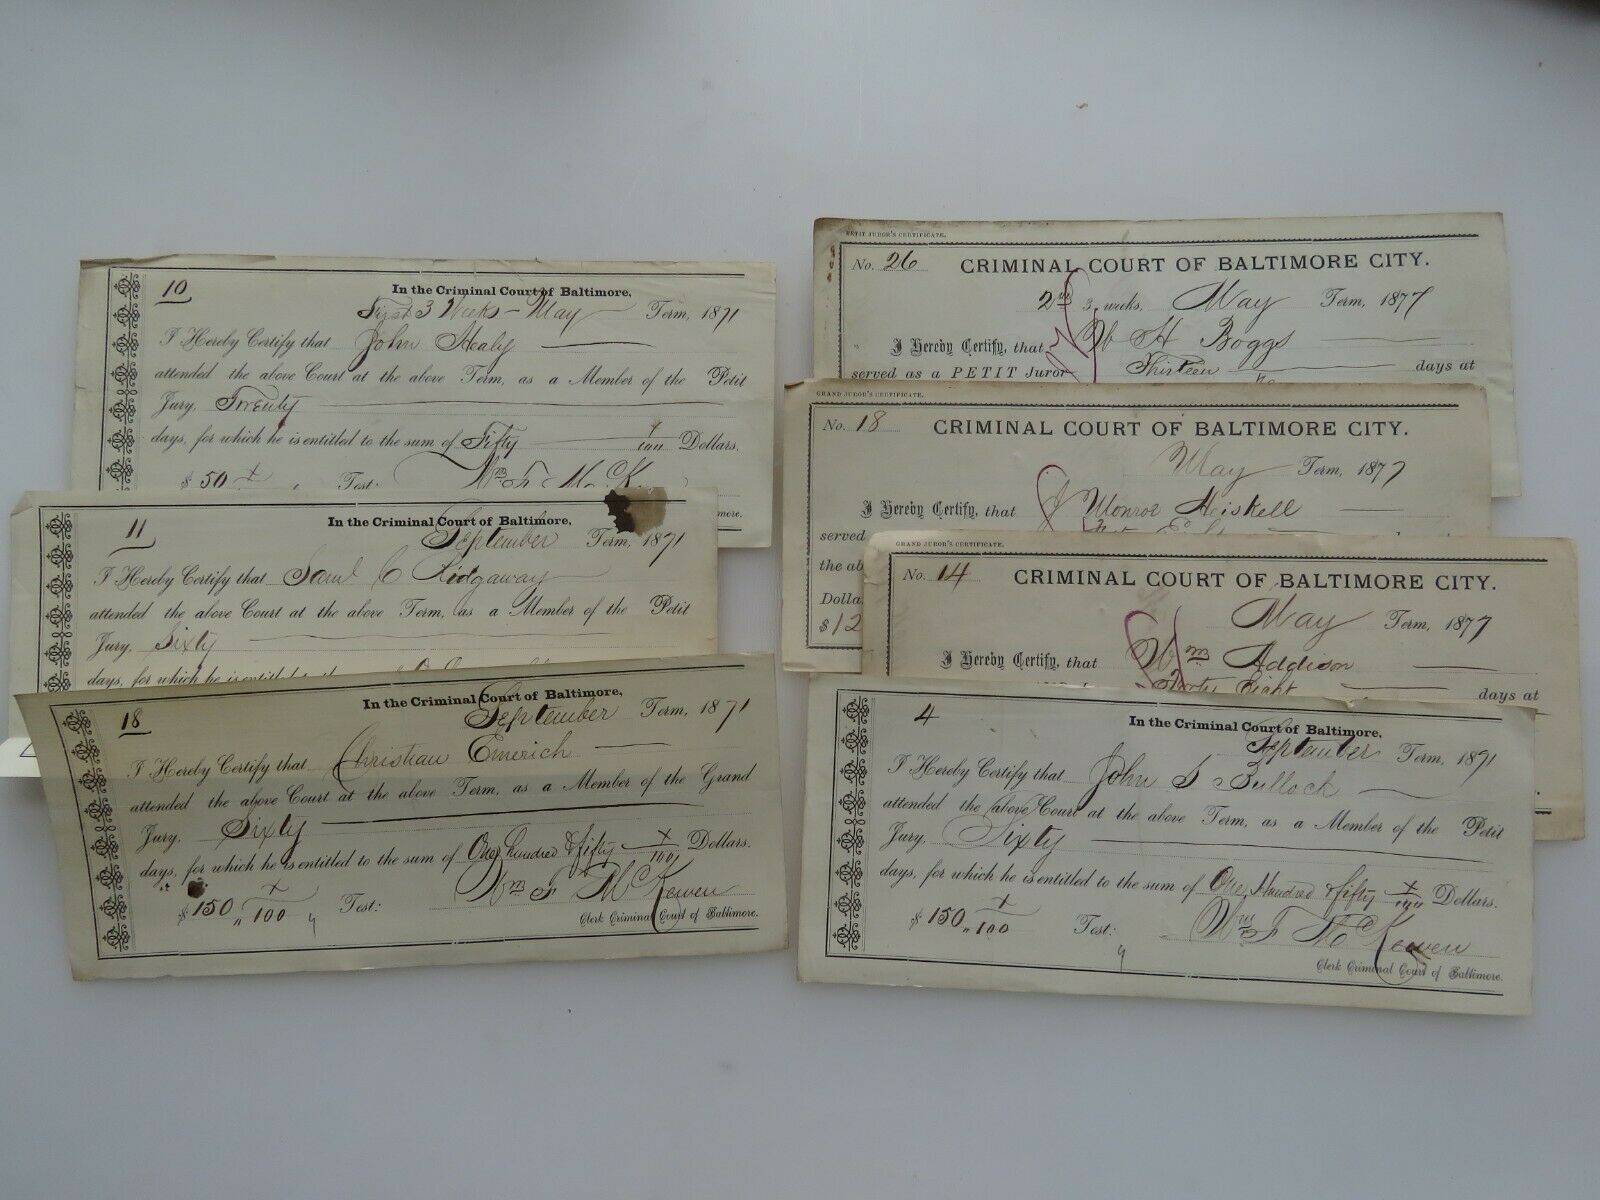 10
In the Criminal Court of Baltimore,
First 3 Weeks - May Term, 1871
I Hereby Certify that John Healy
attended the above Court at the above Term, as a Member of the Petit
Jury, Twenty
days, for which he is entitled to the sum of Fifty Dollars.
$ 50 Test: Wm F McK
more.
11
In the Criminal Court of Baltimore,
September Term, 1871
I Hereby Certify that Saml C Ridgaway
attended the above Court at the above Term, as a Member of the Petit
Jury, Sixty
days, for which he is entitled to the
18
In the Criminal Court of Baltimore,
September Term, 1871
I Hereby Certify that Christian Emerich
attended the above Court at the above Term, as a Member of the Grand
Jury, Sixty
days, for which he is entitled to the sum of One hundred & fifty x/100 Dollars.
$ 150 x/100 Test: Wm F McKewen
Clerk Criminal Court of Baltimore.
PETIT JUROR'S CERTIFICATE.
No. 26 CRIMINAL COURT OF BALTIMORE CITY.
2nd 3 weeks, May Term, 1877
I Hereby Certify, that W H Boggs
served as a PETIT Juror Thirteen days at
GRAND JUROR'S CERTIFICATE.
No. 18 CRIMINAL COURT OF BALTIMORE CITY.
May Term, 1877
I Hereby Certify, that J Monroe Heiskell
served
the ab
Dolla
$ 12
GRAND JUROR'S CERTIFICATE.
No. 14 CRIMINAL COURT OF BALTIMORE CITY.
May Term, 1877
I Hereby Certify, that Wm Addison
Eight days at
4
In the Criminal Court of Baltimore,
September Term, 1871
I Hereby Certify that John S Bullock
attended the above Court at the above Term, as a Member of the Petit
Jury, Sixty
days, for which he is entitled to the sum of One Hundred & fifty x/100 Dollars.
$ 150 x/100 Test: Wm F McKewen
Clerk Criminal Court of Baltimore.